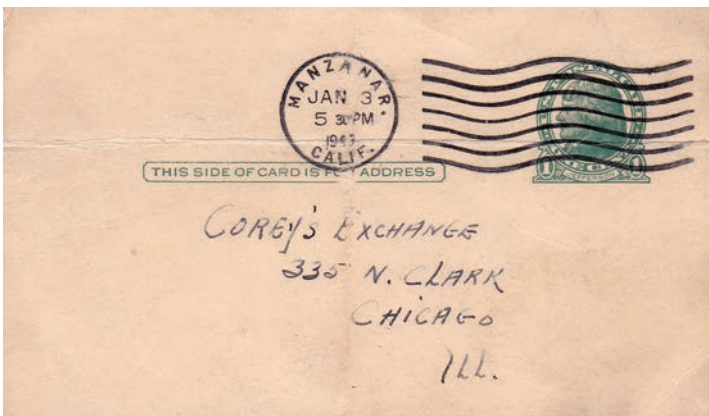 MANZANAR
JAN 3
5 30 PM
1943
CALIF.
THIS SIDE OF CARD IS FOR ADDRESS
1 JEFFERSON 1
COREY'S EXCHANGE
335 N. CLARK
CHICAGO
ILL.